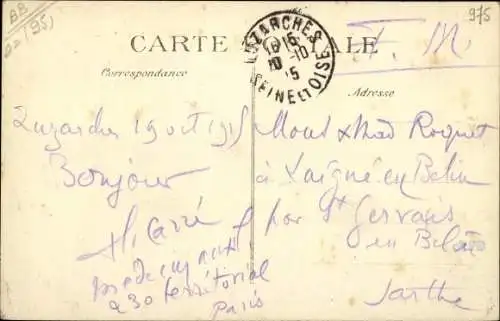 BB
(95)
975
CARTE POSTALE
Correspondance
Adresse
F. M
LUZARCHES
10-10
15
SEINE ET OISE
Luzarches 19 oct 1915
Bonjour
H Carré
médecin
230 territorial
Paris
Mons & Mad Roquet
à Laigné en Belin
par St Gervais
en Belin
Sarthe